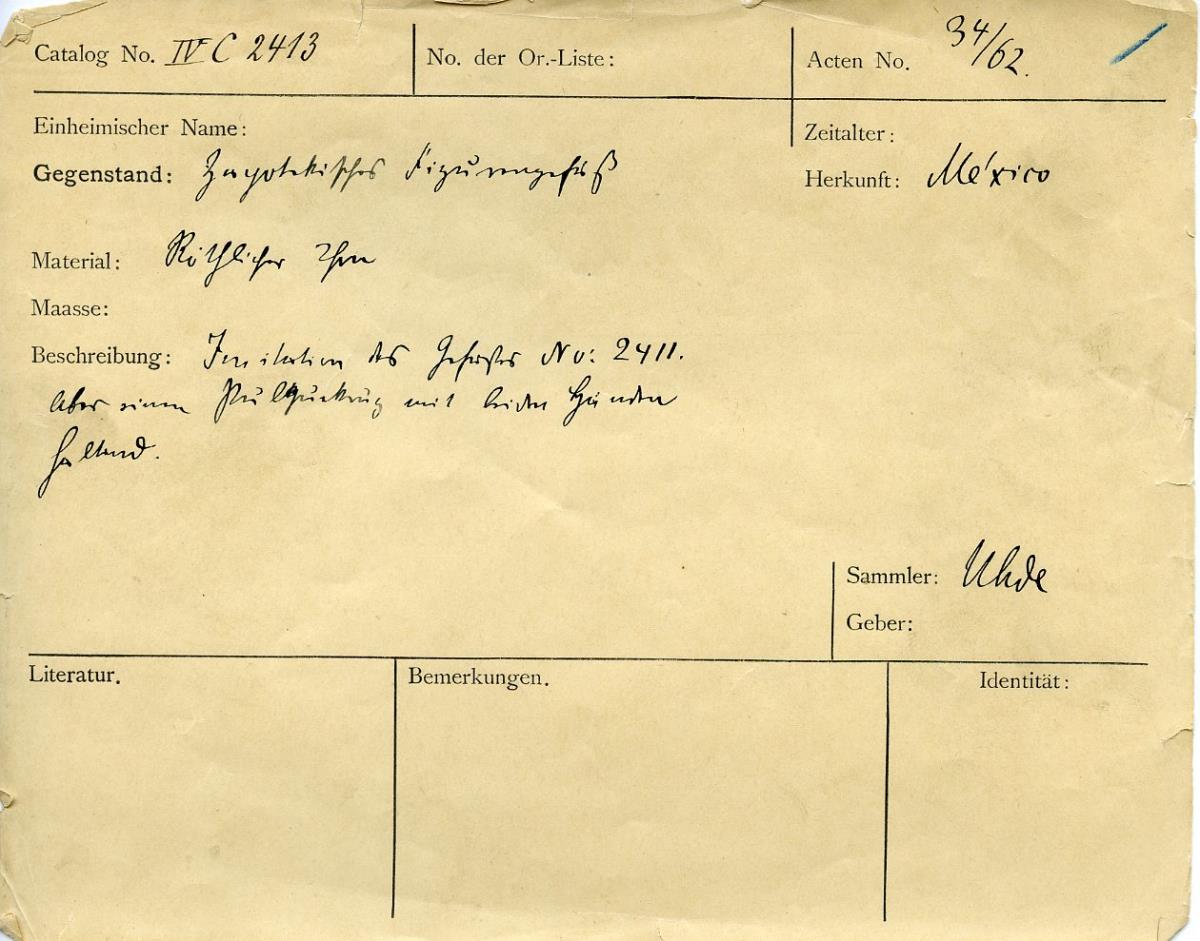 Catalog No. IV C 2413
No. der Or.-Liste:
Acten No. 34/62.
Einheimischer Name:
Zeitalter:
Gegenstand: Zapotekisches Figurengefäß
Herkunft: México
Material: Röthlicher Thon
Maasse:
Beschreibung: Imitation des Gefässes No: 2411.
Aber einen Pulquekrug mit beiden Händen
haltend.
Sammler: Uhde
Geber:
Literatur.
Bemerkungen.
Identität: